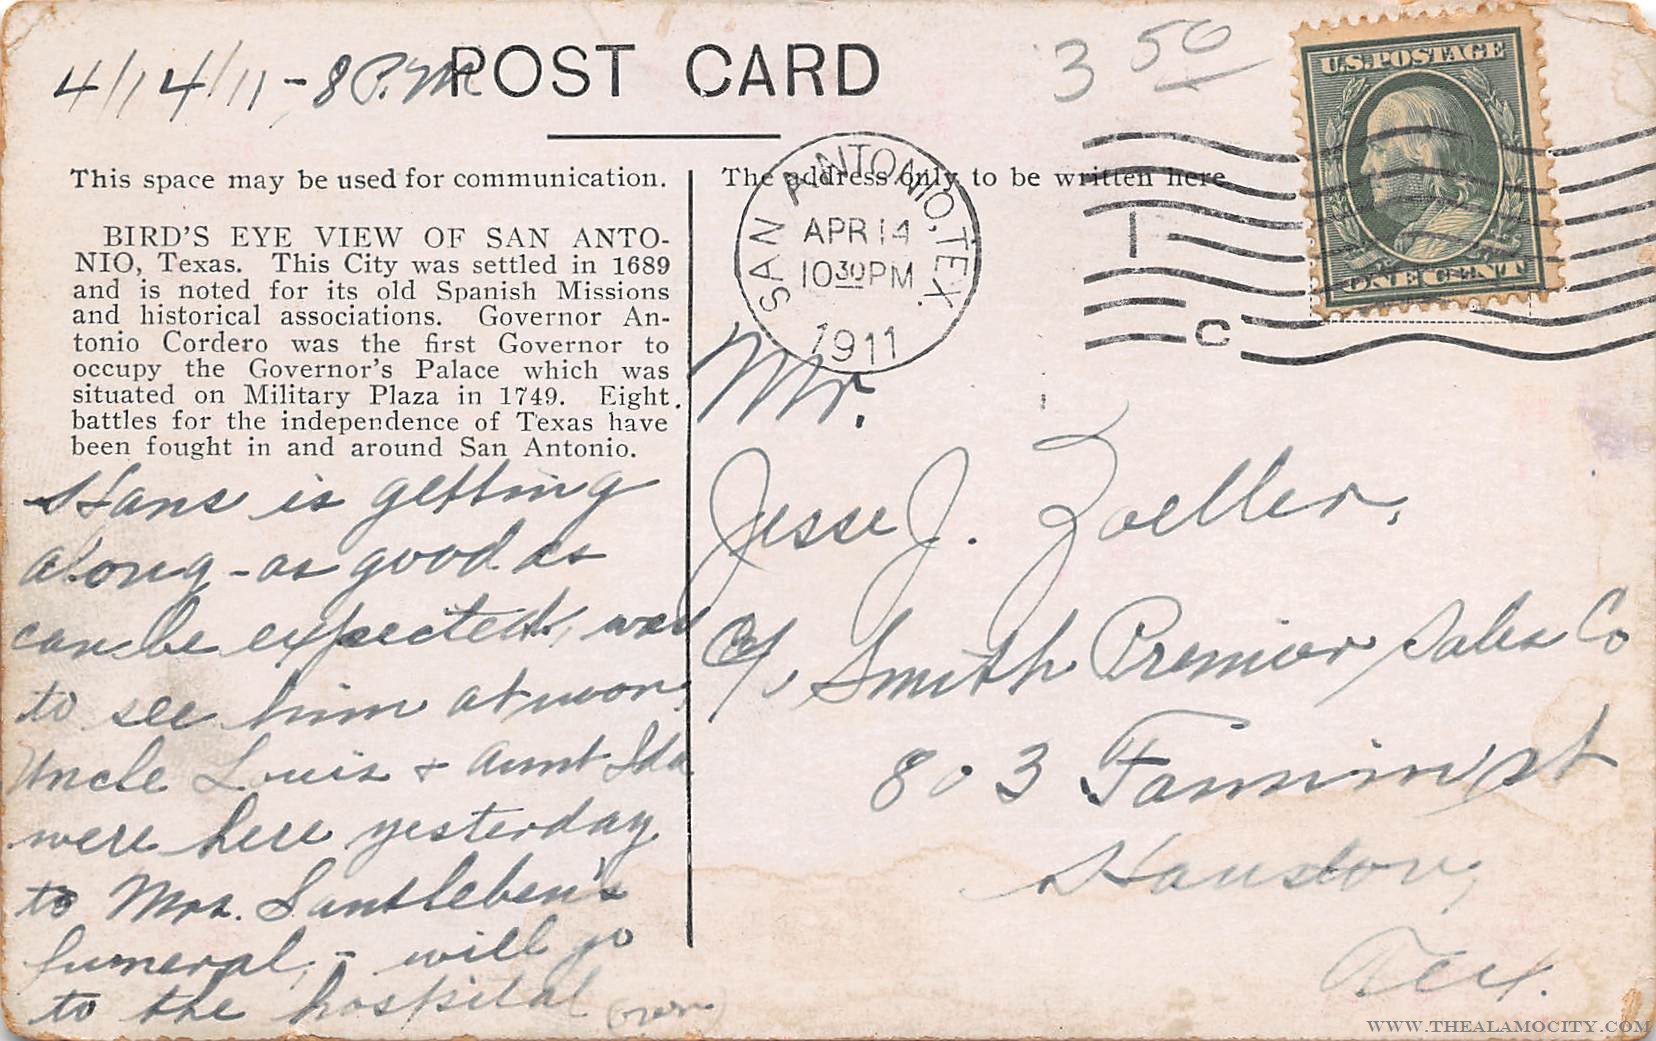 4/14/11 - 8 P.M.
POST CARD
3 50
U.S. POSTAGE
ONE CENT
This space may be used for communication.
The address only to be written here.
SAN ANTONIO, TEX.
APR 14
10 30 PM
1911
1
C
BIRD'S EYE VIEW OF SAN ANTO-
NIO, Texas. This City was settled in 1689
and is noted for its old Spanish Missions
and historical associations. Governor An-
tonio Cordero was the first Governor to
occupy the Governor's Palace which was
situated on Military Plaza in 1749. Eight
battles for the independence of Texas have
been fought in and around San Antonio.
Hans is getting
along - as good as
can be expected, was
to see him at noon,
Uncle Louis + Aunt Ida
were here yesterday
to Mrs. Santleben's
funeral, - will go
to the hospital
(over)
Mr.
Jesse J. Zoeller,
c/o Smith Premier Sales Co
803 Fannin St
Houston,
Tex.
WWW.THEALAMOCITY.COM